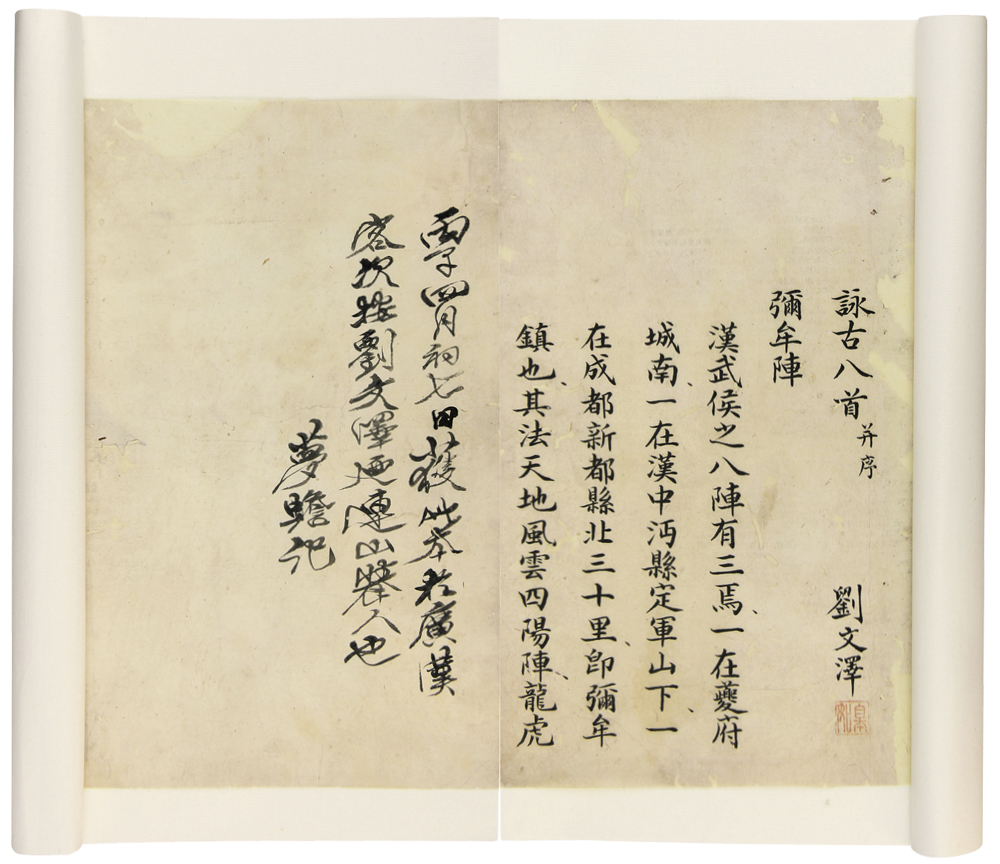 詠古八首 并序
劉文澤
彌牟陣
漢武侯之八陣有三焉、一在夔府
城南、一在漢中沔縣定軍山下、一
在成都新都縣北三十里、卽彌牟
鎮也、其法天地風雲四陽陣、龍虎
丙子四月初七日獲此本於廣漢
客次按劉文澤迺連山舉人也
夢蟾記